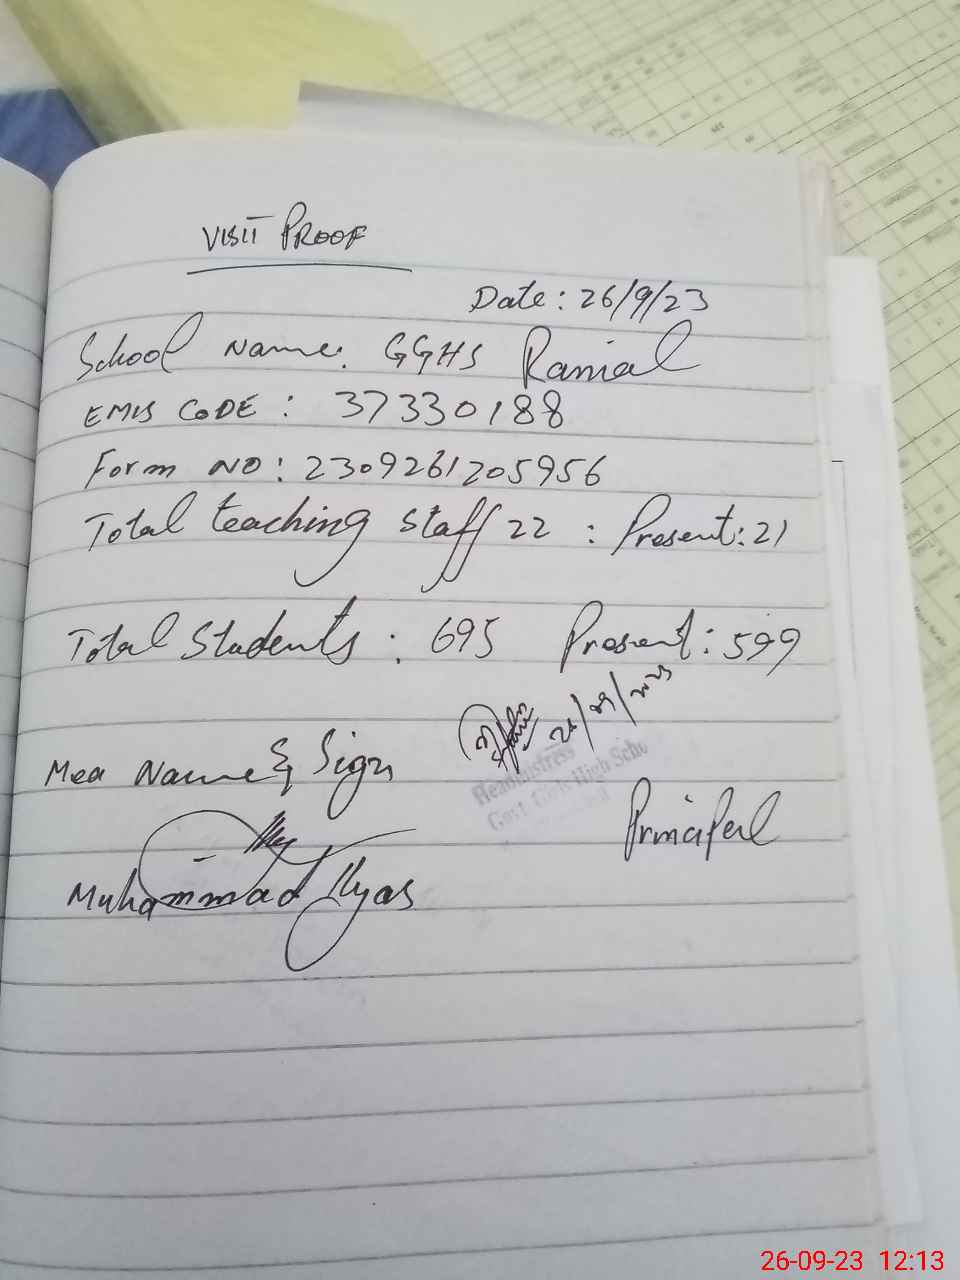 VISIT PROOF
Date: 26/9/23
School Name. GGHS Ranial
EMIS CODE : 37330188
Form NO: 2309261205956
Total teaching staff 22 : Present: 21
Total Students : 695 Present: 599
26/09/2023
Mea Name & Sign
Headmistress
Govt. Girls High Scho
Principal
Muhammad Ilyas
26-09-23 12:13